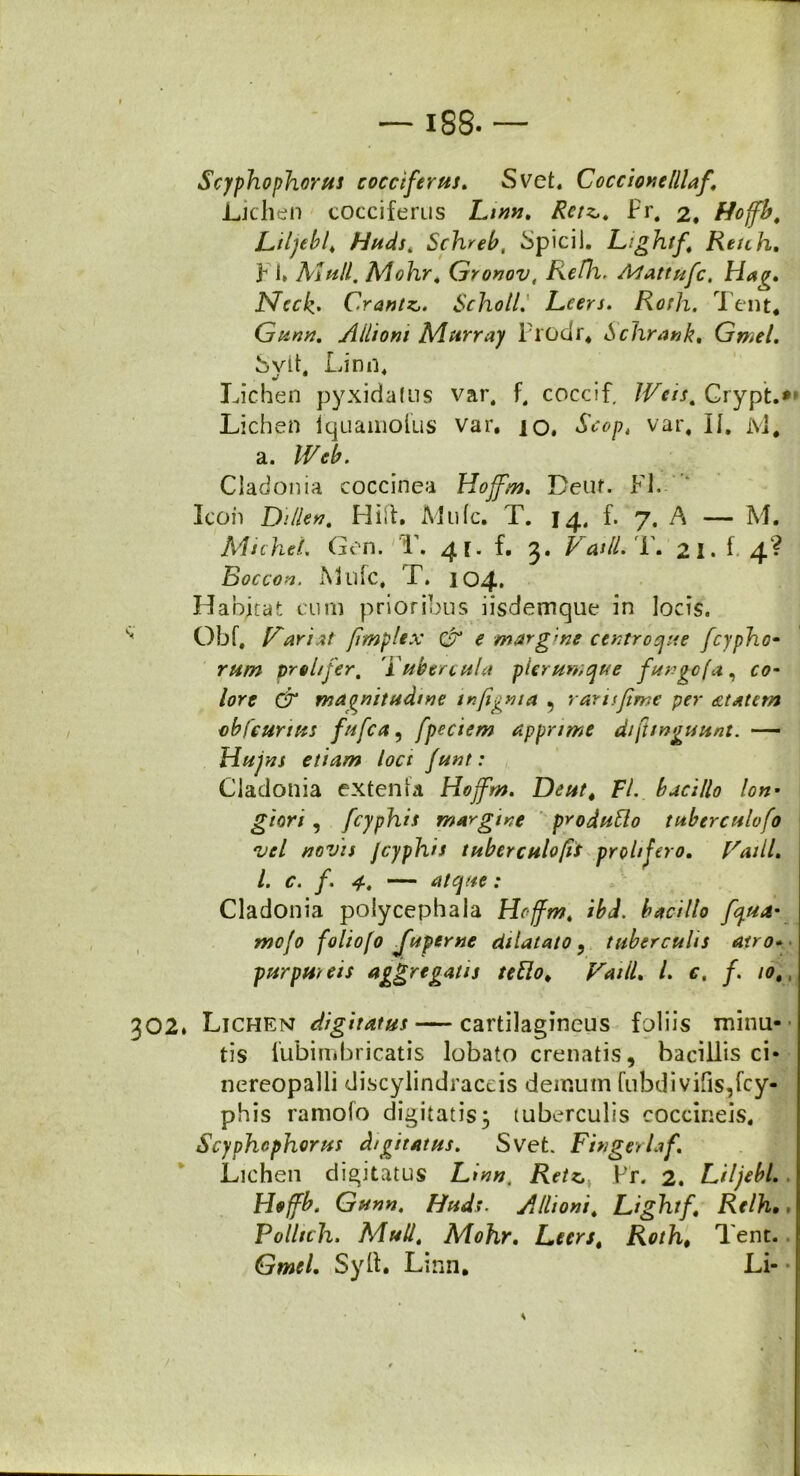 — 188. —
Scyphophorus cocciferus. Svet. Coccionelllaf.
Lichen cocciferus Linn. Retz. Pr. 2. Hoffb.
Liljebl. Huds. Schreb. Spicil. Lightf. Reich.
Fl. Mull. Mohr. Gronov. Relh. Mattusc. Hag.
Neck. Crantz. Scholl. Leers. Roth. Tent.
Gunn. Allioni Murray Prodr. Schrank. Gmel.
Syst. Linn.
Lichen pyxidatus var. f. coccif. Weis. Crypt.
Lichen squamosus var. 10. Scop. var. II. M.
a. Web.
Cladonia coccinea Hoffm. Deut. Fl.
Icon Dillen. Hist. Musc. T. 14. f. 7. A — M.
Michel. Gen. T. 41. f. 3. Vaill. T. 21. f. 4?
Boccon. Musc. T. 104.
Habitat cum prioribus iisdemque in locis.
Obs. Variat simplex & e margine centroque scypho-
rum prolifer. Tubercula plerumque fungosa, co-
lore & magnitudine insignia, rarissime per ætatem
obscurius fusca, speciem apprime distinguunt. —
Hujus etiam loci sunt:
Cladonia extensa Hoffm. Deut. Fl. bacillo lon-
giori, scyphis margine producto tuberculoso
vel novis scyphis tuberculosis prolifero. Vaill.
l. c. f. 4. — atque:
Cladonia polycephala Hoffm. ibd. bacillo squa-
moso folioso superne dilatato, tuberculis atro-
purpureis aggregatis tecto. Vaill. l. c. f. 10.
302. LICHEN digitatus — cartilagineus foliis minu-
tis subimbricatis lobato crenatis, bacillis ci-
nereopallidiscylindraceis demum subdivisis, scy-
phis ramoso digitatis; tuberculis coccineis.
Scyphophorus digitatus. Svet. Fingerlaf.
Lichen digitatus Linn. Retz. Pr. 2. Liljebl.
Hoffb. Gunn. Huds. Allioni. Lightf. Relh.
Pollich. Mull. Mohr. Leers. Roth. Tent.
Gmel. Syst. Linn. Li-